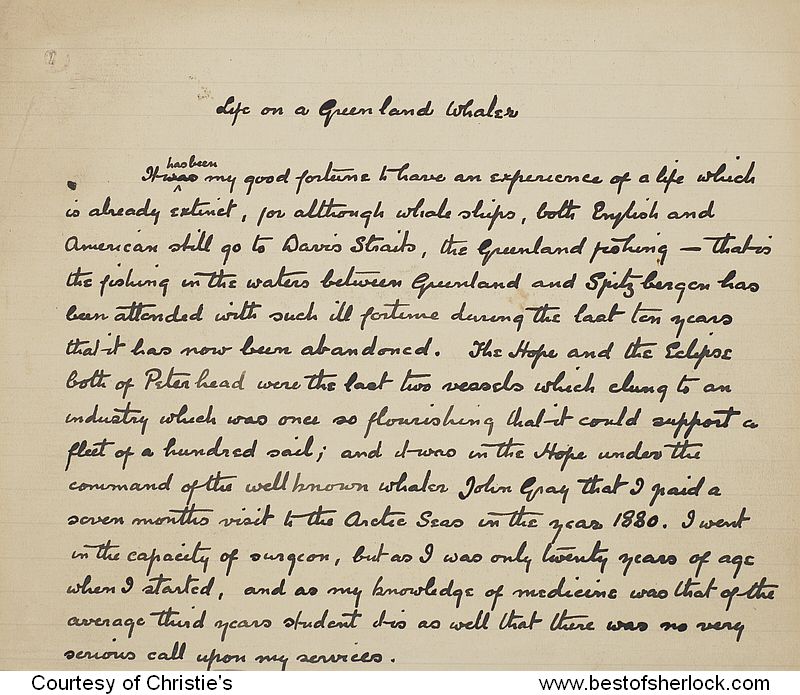 Life on a Greenland Whaler
has been
It was my good fortune to have an experience of a life which
is already extinct, for although whale ships, both English and
American still go to Davis Straits, the Greenland fishing — that is
the fishing in the waters between Greenland and Spitzbergen has
been attended with such ill fortune during the last ten years
that it has now been abandoned. The Hope and the Eclipse
both of Peterhead were the last two vessels which clung to an
industry which was once so flourishing that it could support a
fleet of a hundred sail; and it was in the Hope under the
command of the well known whaler John Gray that I paid a
seven months visit to the Arctic Seas in the year 1880. I went
in the capacity of surgeon, but as I was only twenty years of age
when I started, and as my knowledge of medicine was that of the
average third years student it is as well that there was no very
serious call upon my services.
Courtesy of Christie's www.bestofsherlock.com